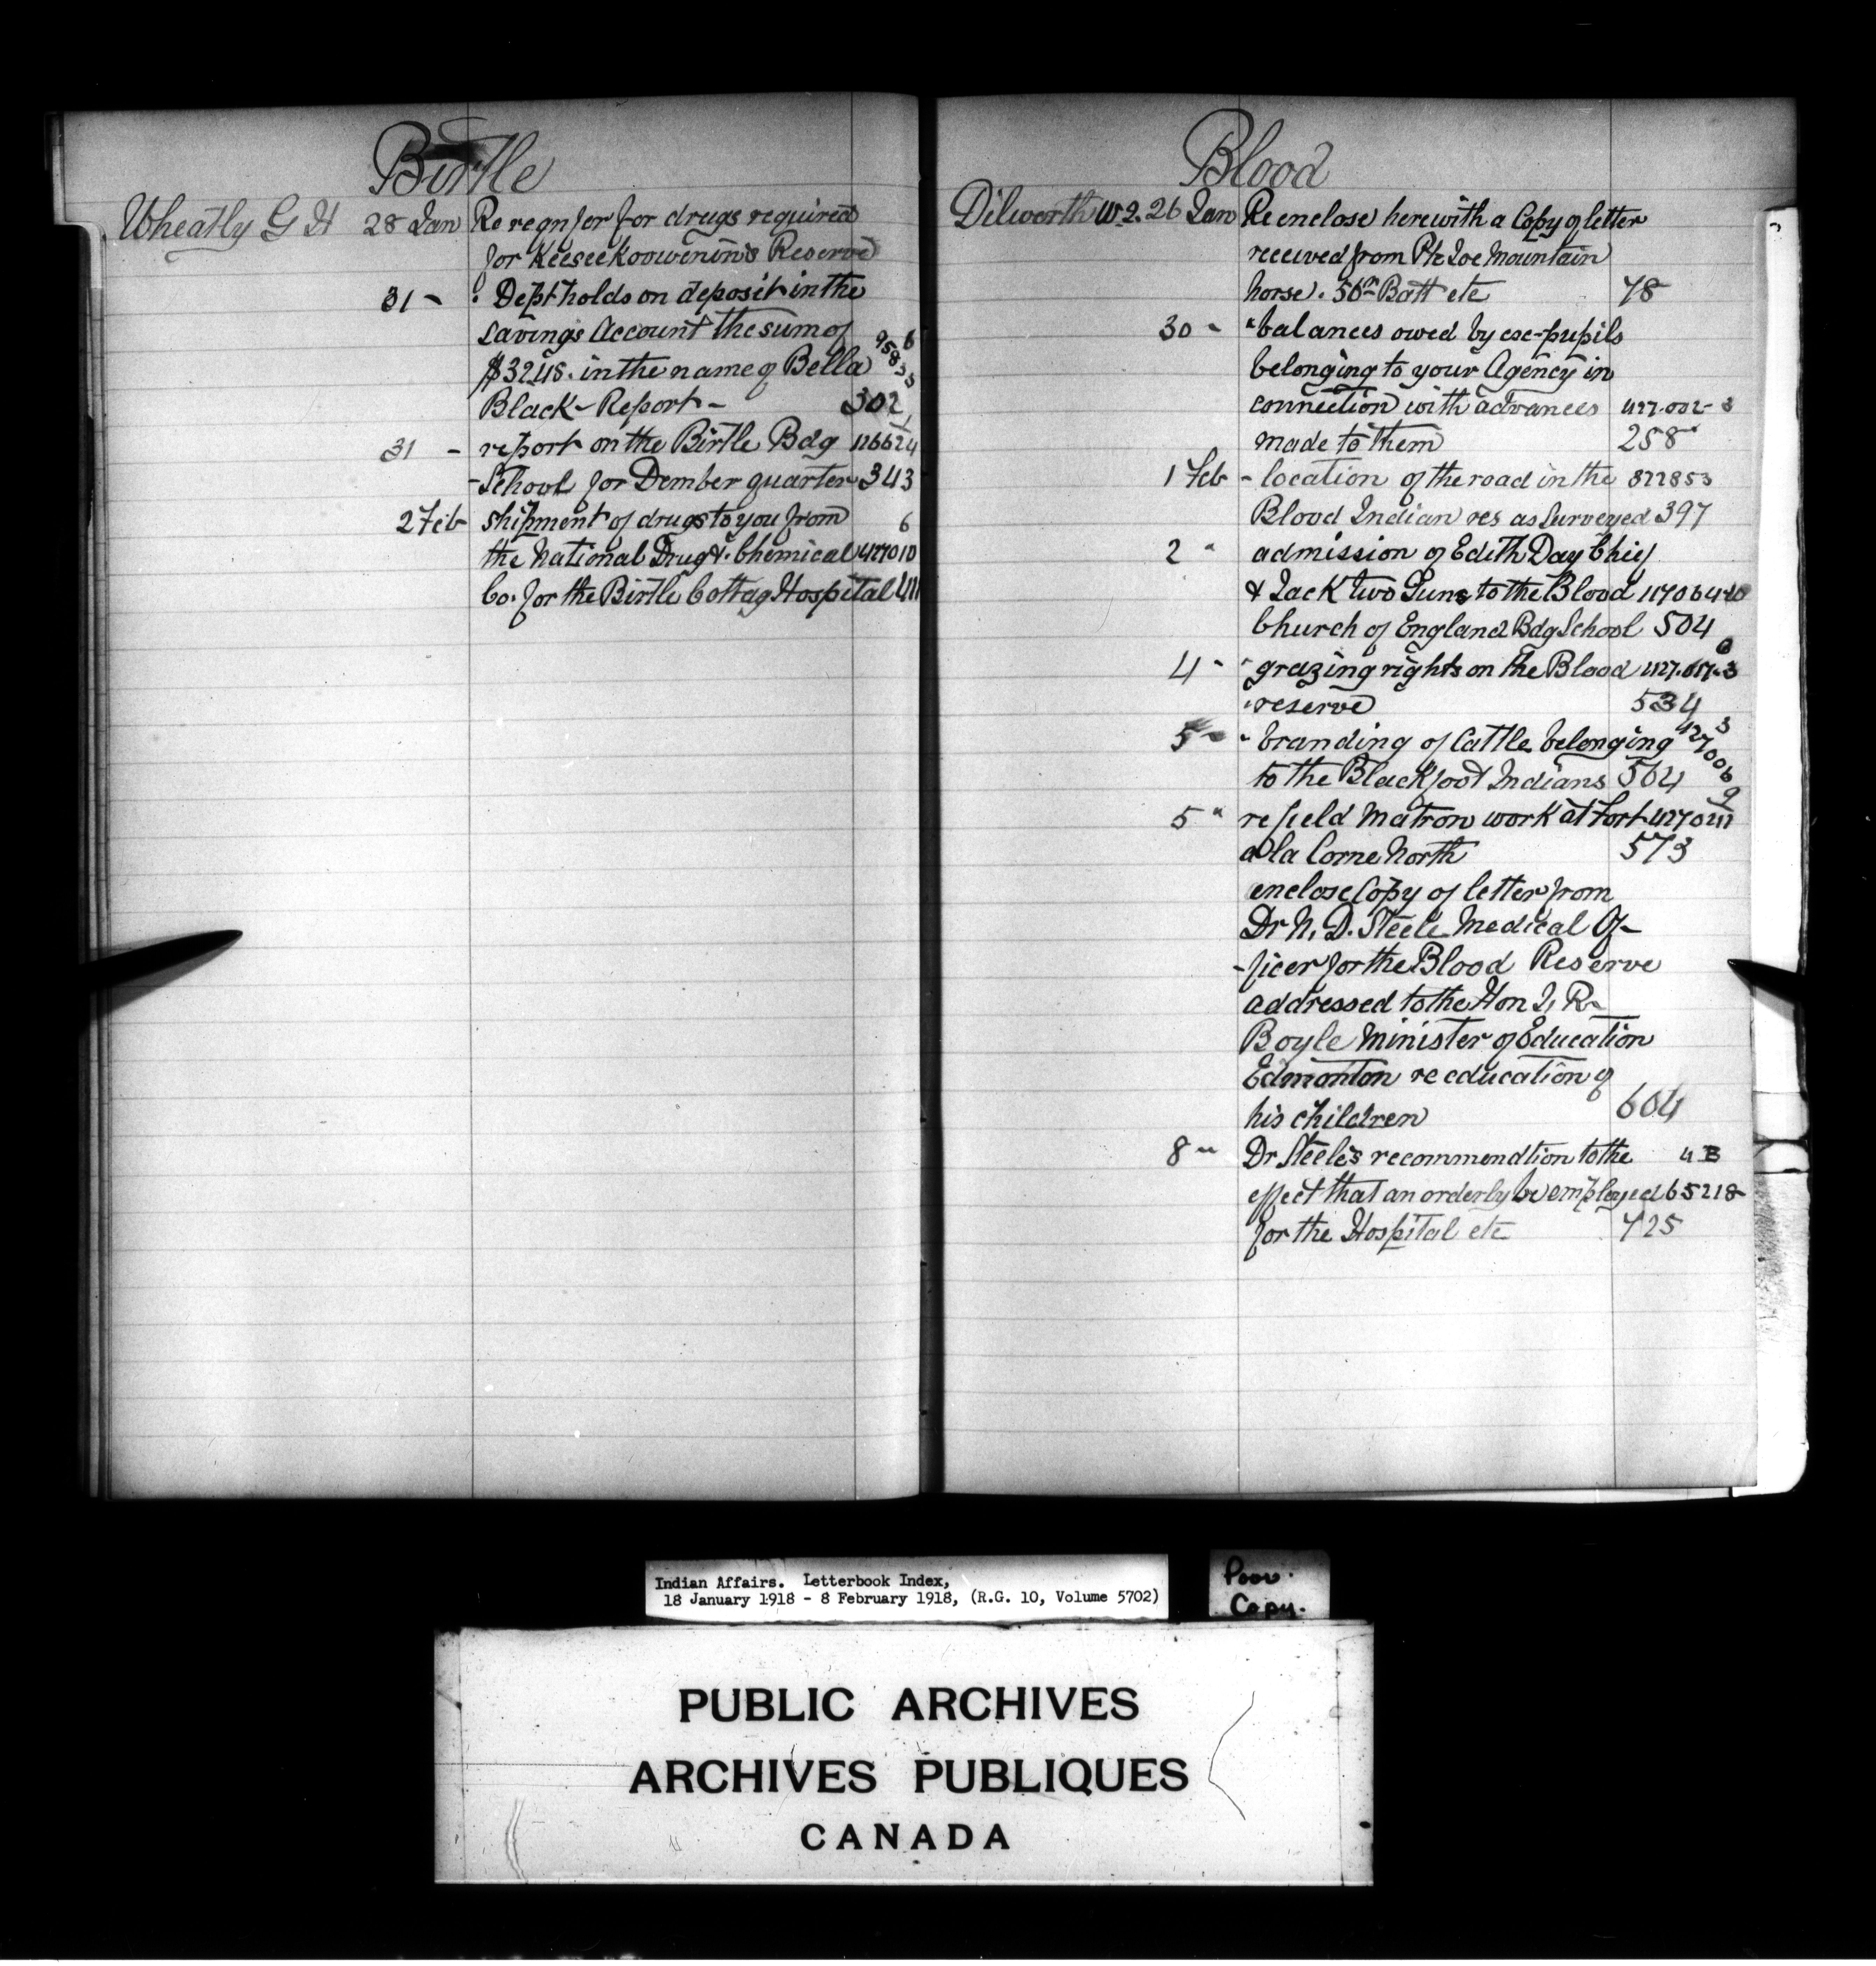 Birtle
Wheatly G H 28 Jan Re reqn for for drugs required
for Keeseekoowenin's Reserve
31 - " Dept holds on deposit in the
savings account the sum of
$32.48. in the name of Bella
Black - Report - 302
31 - report on the Birtle Bdg 126624
- School for Dember quarter 343
2 Feb shipment of drugs to you from 6
the National Drug & Chemical 427010
Co. for the Birtle Cottag Hospital 411
Blood
Dilworth W J. 26 Jan Re enclose herewith a Copy of letter
received from Pte Joe Mountain
horse. 50th Batt etc 78
30 - " balances owed by exe-pupils
belonging to your Agency in
connection with advances 427.002-3
made to them 258
1 Feb - location of the road in the 822853
Blood Indian res as Surveyed 397
2 " admission of Edith Day Chief
& Jack two Guns to the Blood
Church of England Bdg School 504
4 - " grazing rights on the Blood
" reserve 534
5 - " branding of Cattle belonging
to the Blackfoot Indians 564
5 " re field Matron work at Fort
a la Corne North 573
enclose Copy of letter from
Dr N. D. Steele Medical Of-
-ficer for the Blood Reserve
addressed to the Hon J. R.
Boyle Minister of Education
Edmonton re education of
his children 604
8 " Dr Steele's recommendtion to the
effect that an orderly be employed 65218
for the Hospital etc 725
Indian Affairs. Letterbook Index,
18 January 1918 - 8 February 1918, (R.G. 10, Volume 5702)
Poor.
Copy.
PUBLIC ARCHIVES
ARCHIVES PUBLIQUES
CANADA